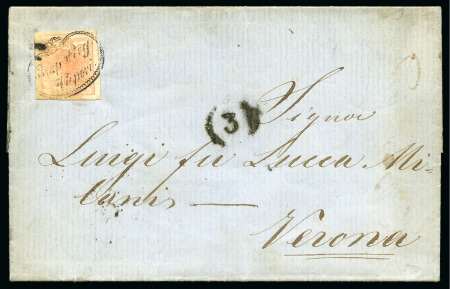 (3)
Signor
Luigi fu Lucca Mi-
lanis —
Verona